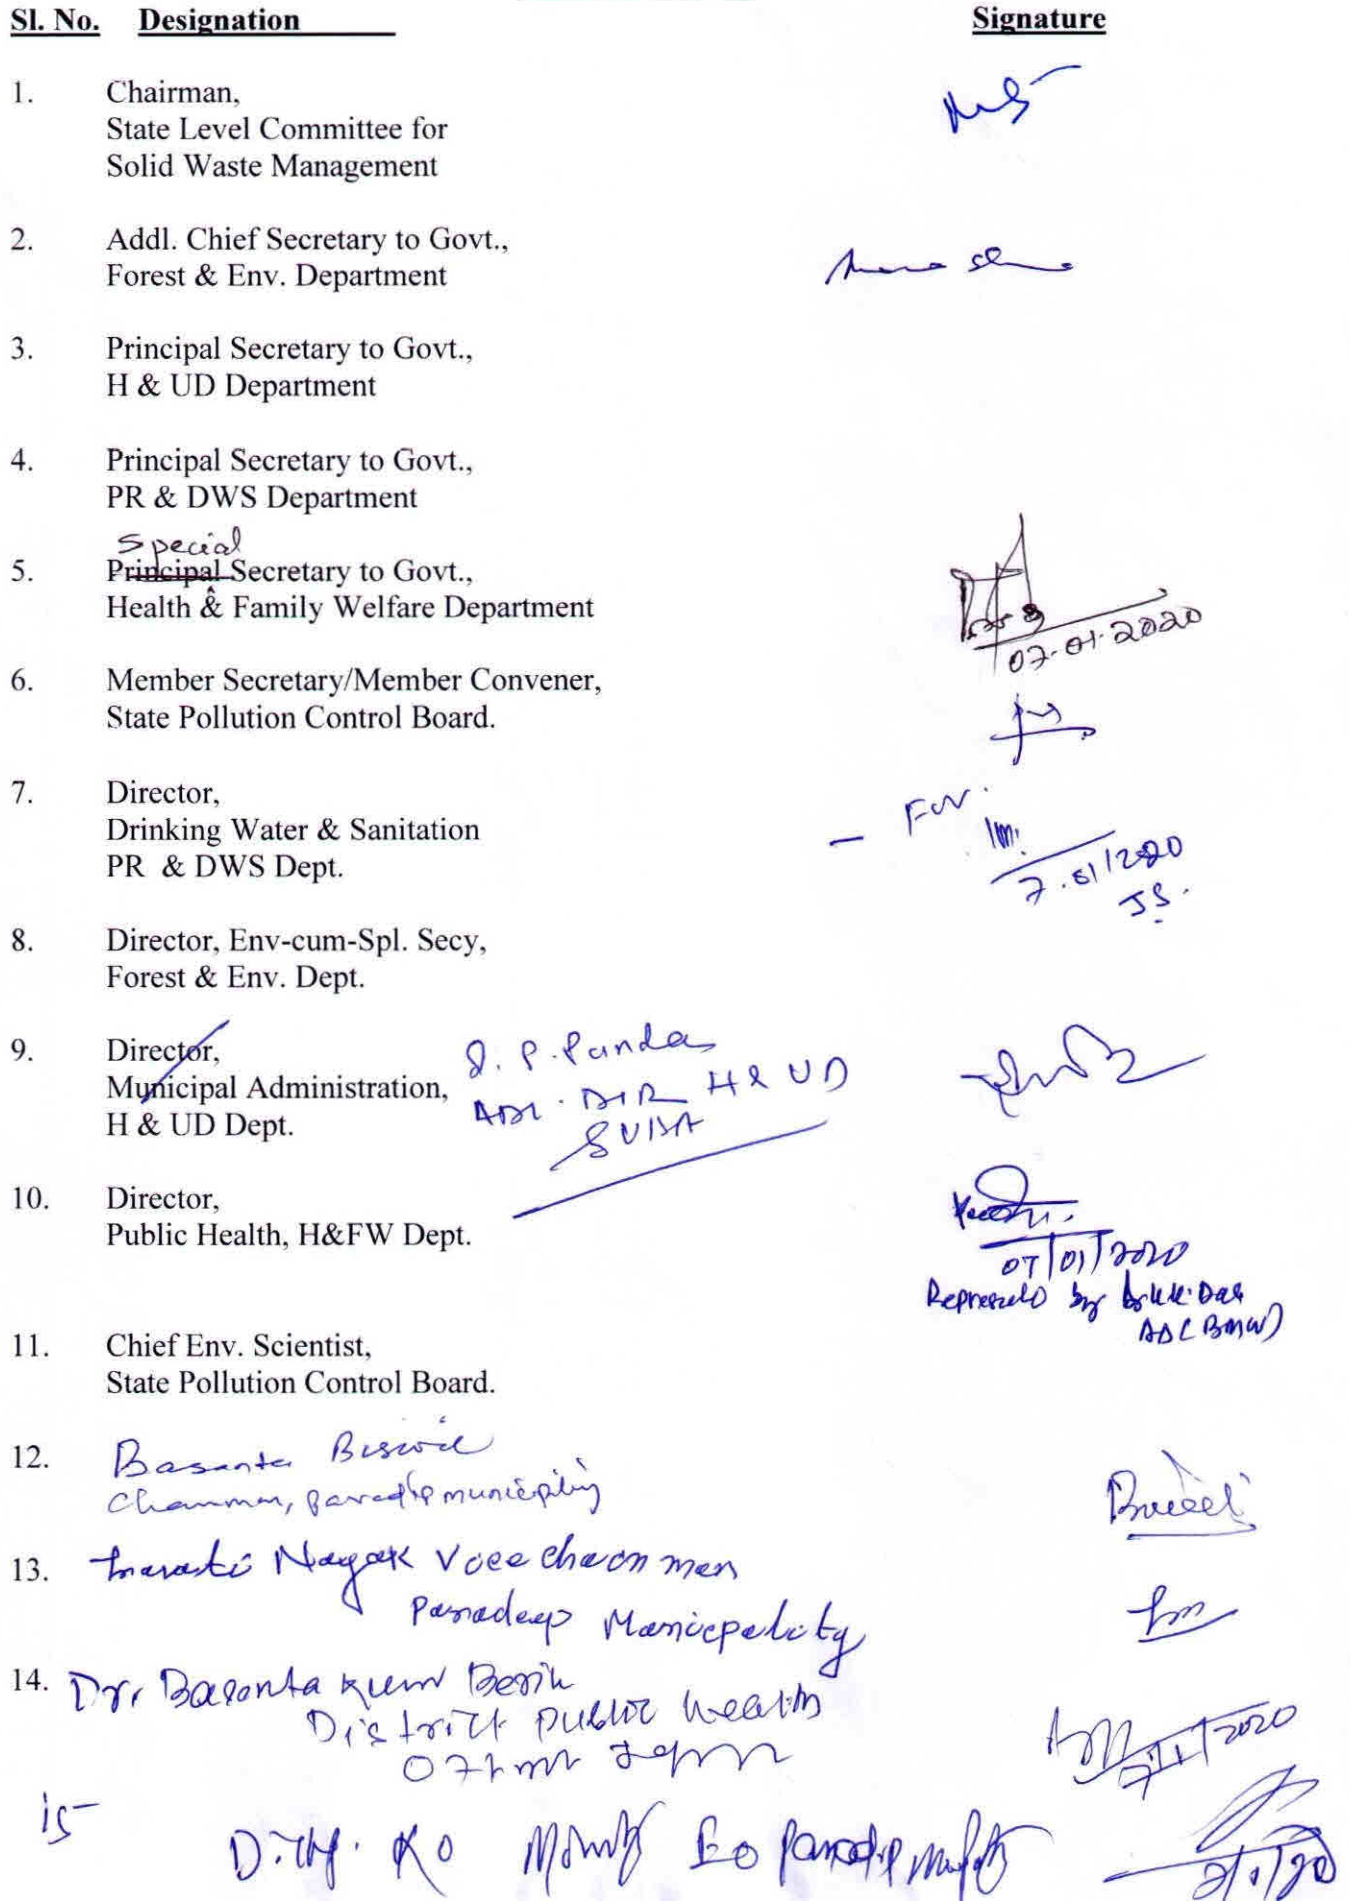 Sl. No. Designation Signature
1. Chairman,
State Level Committee for
Solid Waste Management
2. Addl. Chief Secretary to Govt.,
Forest & Env. Department
3. Principal Secretary to Govt.,
H & UD Department
4. Principal Secretary to Govt.,
PR & DWS Department
Special
5. Principal Secretary to Govt.,
Health & Family Welfare Department
07.01.2020
6. Member Secretary/Member Convener,
State Pollution Control Board.
7. Director,
Drinking Water & Sanitation
PR & DWS Dept.
— For.
7.01/2020
JS.
8. Director, Env-cum-Spl. Secy,
Forest & Env. Dept.
9. Director,
Municipal Administration,
H & UD Dept.
P. Panda
H & UD
SUDA
10. Director,
Public Health, H&FW Dept.
07/01/2020
by Das
(BMW)
11. Chief Env. Scientist,
State Pollution Control Board.
12. Basanta
paradip
13. Nayak
Paradeep
14. Dr. Basanta
District Public Health
7/1/2020
15
EO Paradip